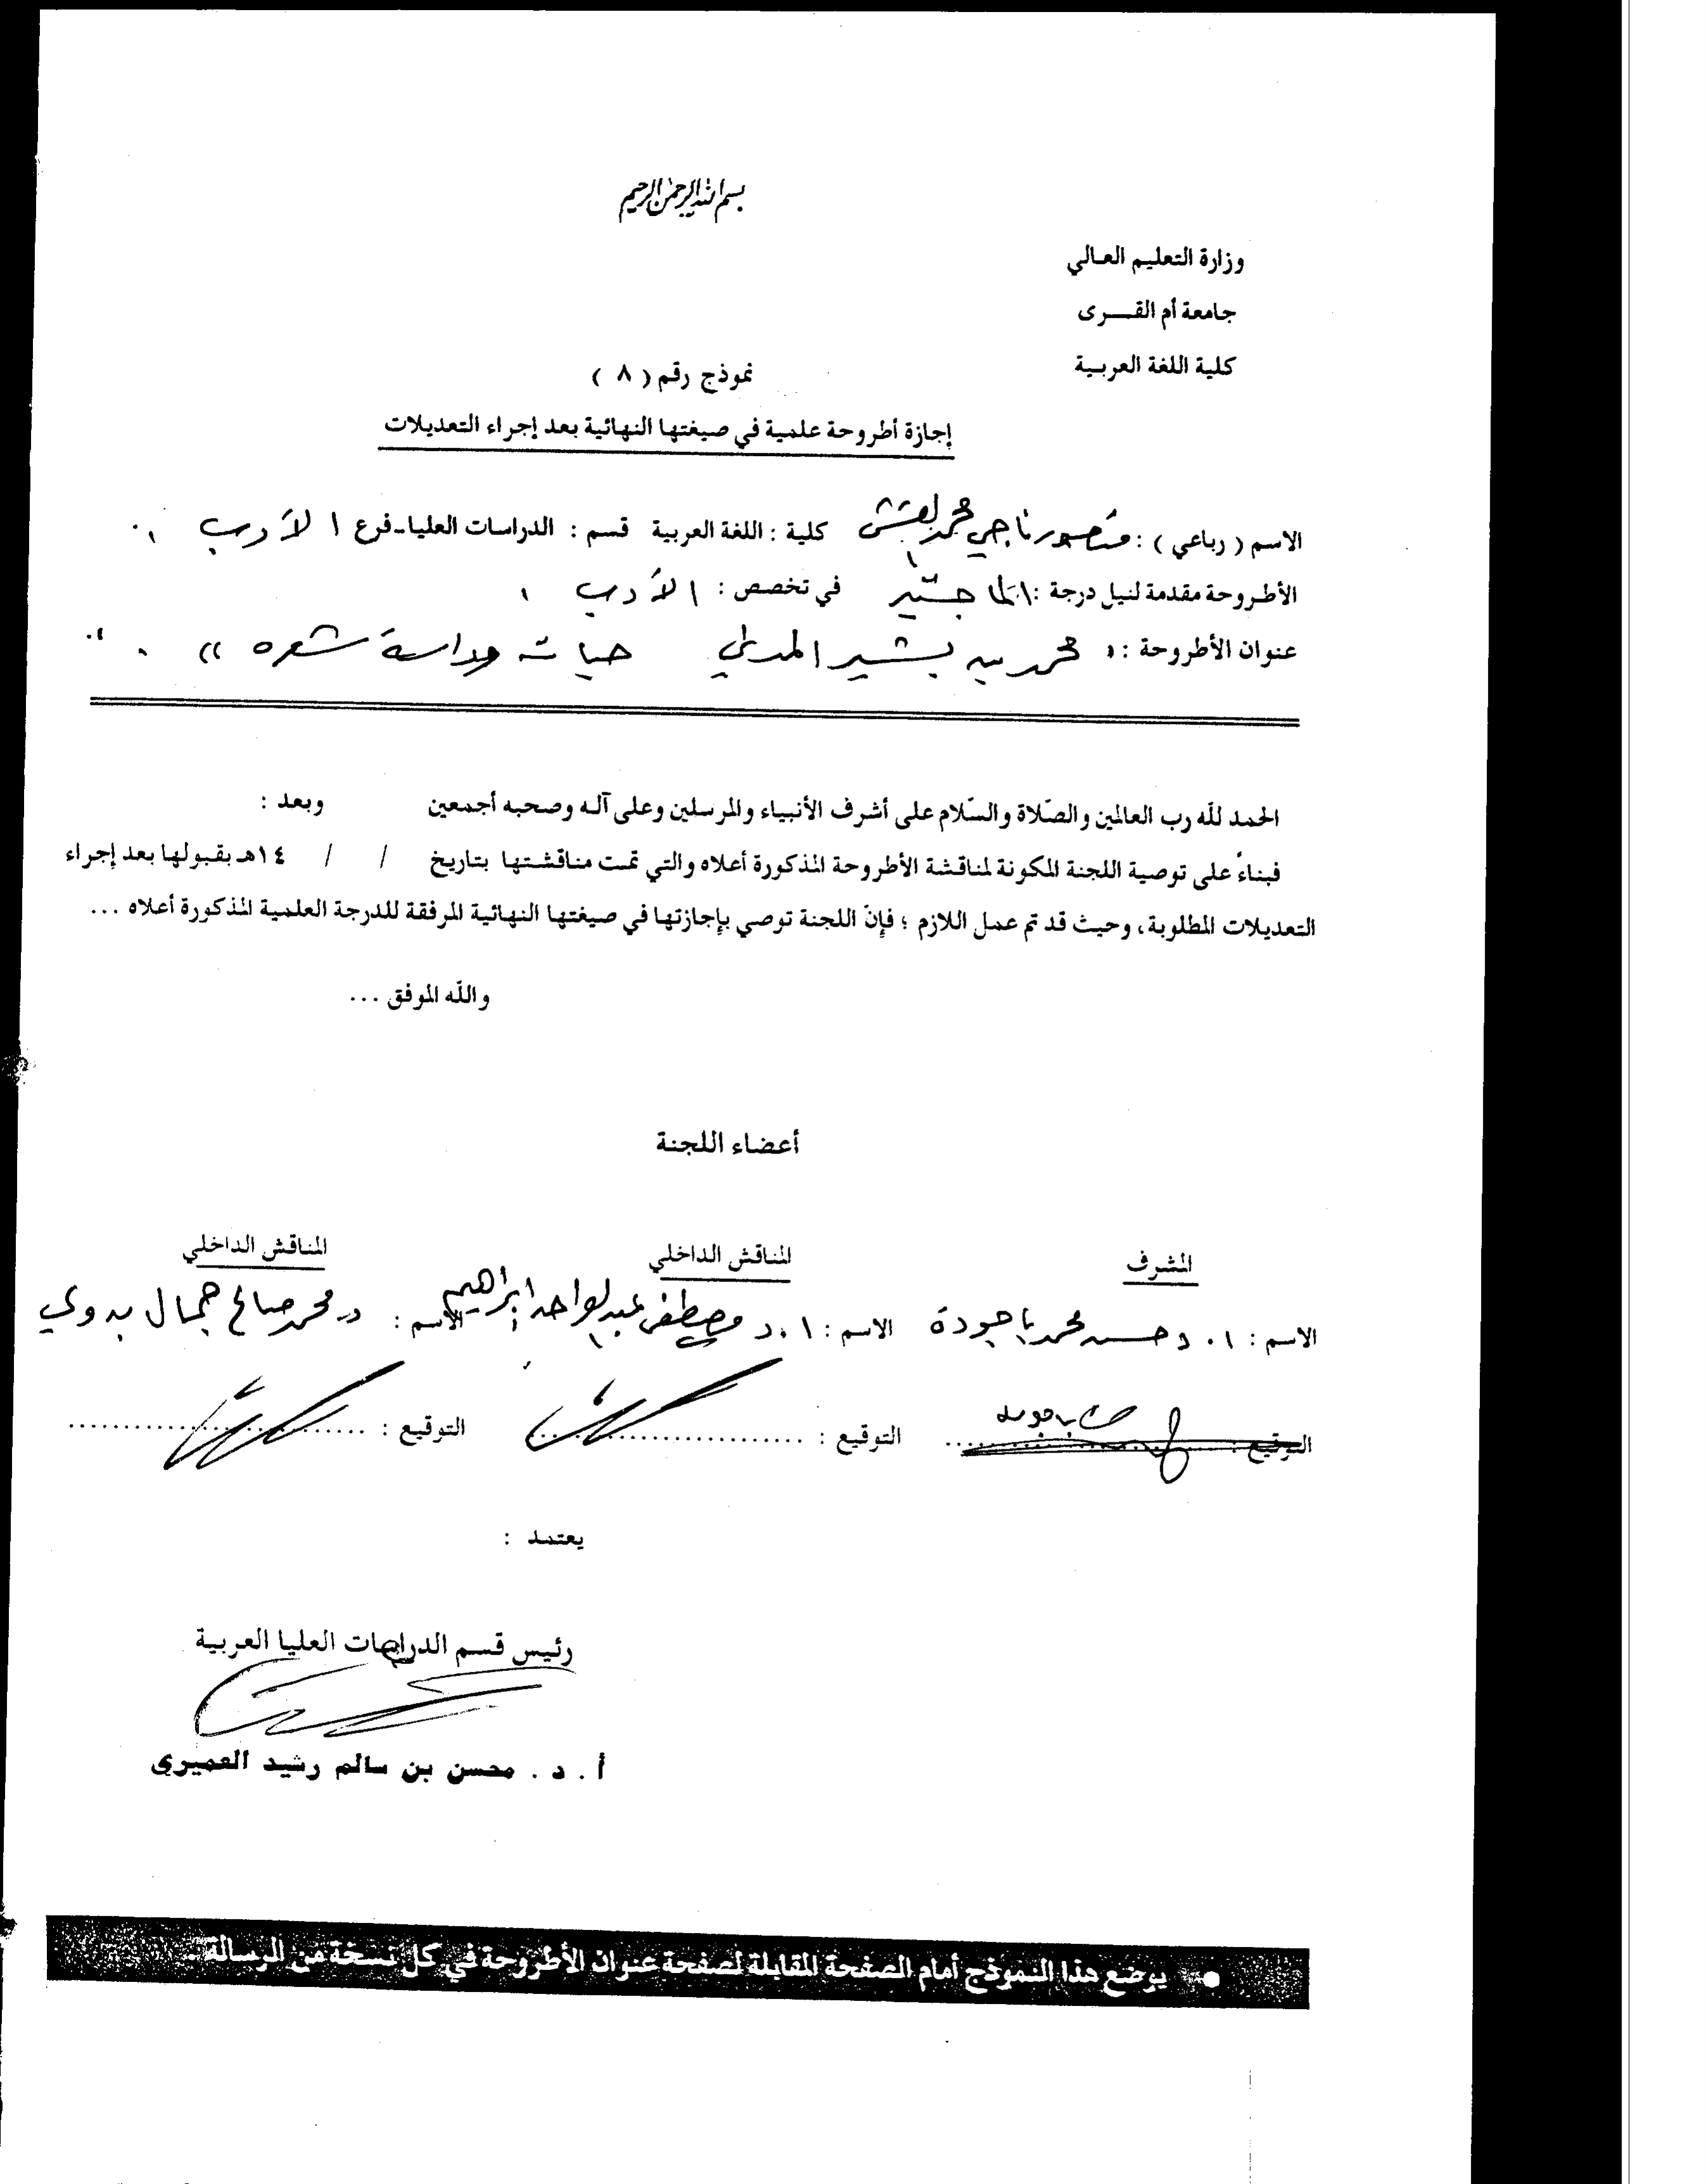 بسم الله الرحمن الرحيم
وزارة التعليم العالي
جامعة أم القــــرى
كلية اللغة العربية
نموذج رقم ( ٨ )
إجازة أطروحة علمية في صيغتها النهائية بعد إجراء التعديلات
الاسم ( رباعي ) : منصور ناجي محمد كلية : اللغة العربية قسم : الدراسات العليا-فرع الأدب
الأطروحة مقدمة لنيل درجة : الماجستير في تخصص : الأدب
عنوان الأطروحة : « محمد بن بشير المدني حياته ودراسة شعره »
الحمد لله رب العالمين والصّلاة والسّلام على أشرف الأنبياء والمرسلين وعلى آلـه وصحبه أجمعين وبعد :
فبناءً على توصية اللجنة المكونة لمناقشة الأطروحة المذكورة أعلاه والتي تمت مناقشتها بتاريخ / / ١٤هـ بقبولها بعد إجراء
التعديلات المطلوبة، وحيث قد تم عمل اللازم ؛ فإنّ اللجنة توصي بإجازتها في صيغتها النهائية المرفقة للدرجة العلمية المذكورة أعلاه ...
والله الموفق ...
أعضاء اللجنة
المشرف المناقش الداخلي المناقش الداخلي
الاسم : ا . د حسن محمد باجودة الاسم : ا . د مصطفى عبدالواحد ابراهيم الاسم : د. محمد صالح جمال بدوي
التوقيع : التوقيع : التوقيع :
يعتمد :
رئيس قسم الدراسات العليا العربية
أ . د . محسن بن سالم رشيد العميري
● يوضع هذا النموذج أمام الصفحة المقابلة لصفحة عنوان الأطروحة في كل نسخة من الرسالة .